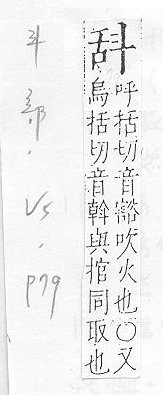 呼括切音豁吹火也〇又
烏括切音斡與捾同取也
斗部. V5. P79